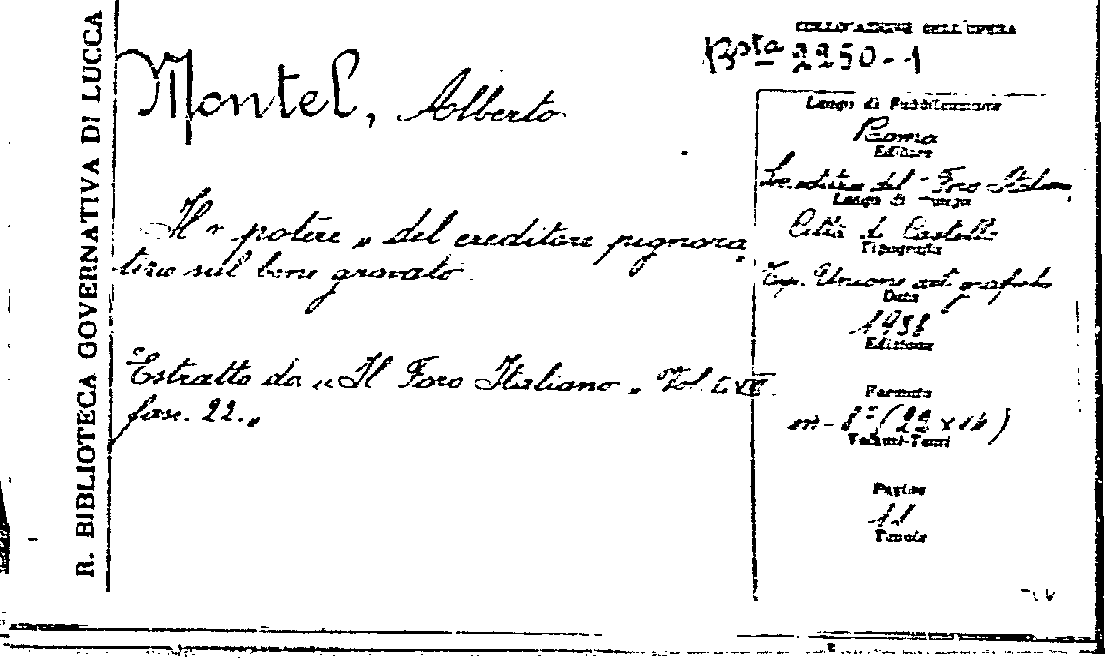 R. BIBLIOTECA GOVERNATIVA DI LUCCA
Montel, Alberto
Il " potere " del creditore pignora-
tizio sul bene gravato.
Estratto da "Il Foro Italiano" Vol. LXIII.
fasc. 22."
COLLOCAZIONE DELL'OPERA
Bsta 2250-1
Luogo di Pubblicazione
Roma
Editore
Soc. editrice del "Foro Italiano"
Luogo di Stampa
Città di Castello
Tipografia
Tip. Unione arti grafiche
Data
1938
Edizione
Formato
in-8° (22 x 14)
Volumi-Tomi
Pagine
11
Tavole